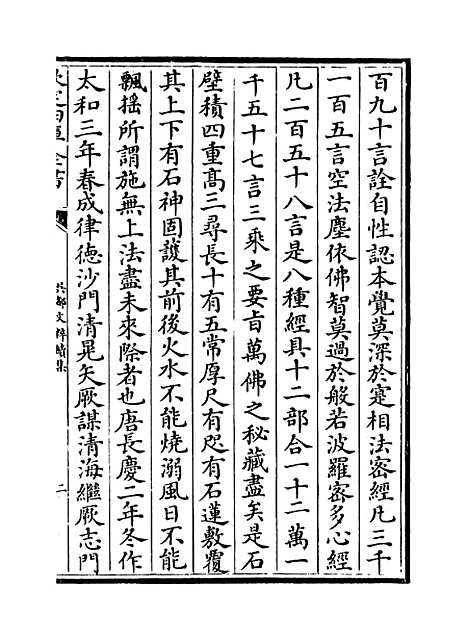 百九十言詮自性認本覺莫深於寔相法密經凡三千
一百五言空法塵依佛智莫過於般若波羅密多心經
凡二百五十八言是八種經具十二部合一十二萬一
千五十七言三乘之要旨萬佛之秘藏盡矣是石
壁積四重髙三尋長十有五常厚尺有咫有石蓮敷覆
其上下有石神固護其前後火水不能燒溺風日不能
飄揺所謂施無上法盡未來際者也唐長慶二年冬作
太和三年春成律德沙門清晃矢厥謀清海繼厥志門
欽定四庫全書
吳都文粹續集
二